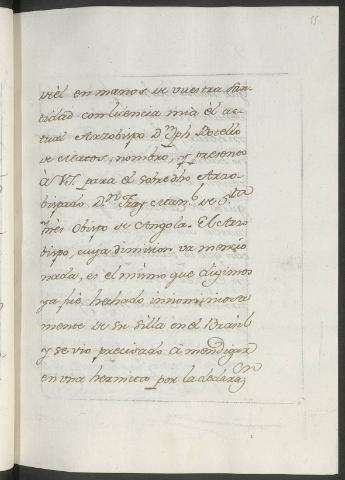 55
en manos de vuestra San-
tidad con licencia mia el ac-
tual Arzobispo Dn. Jph Botello
de Matos, nombro, y presento
à VS. para el sobredho Arzo-
bispado Dn. Fray Man.l de S.ta
Ynés Obispo de Angola. El Arzo-
bispo, cuya dimision va mencio-
nada, es el mismo que digimos
ya fue hechado innominiosa
mente de su Silla en el Brasil
y se vio precisado à mendigar
en una hermita por la declaraon